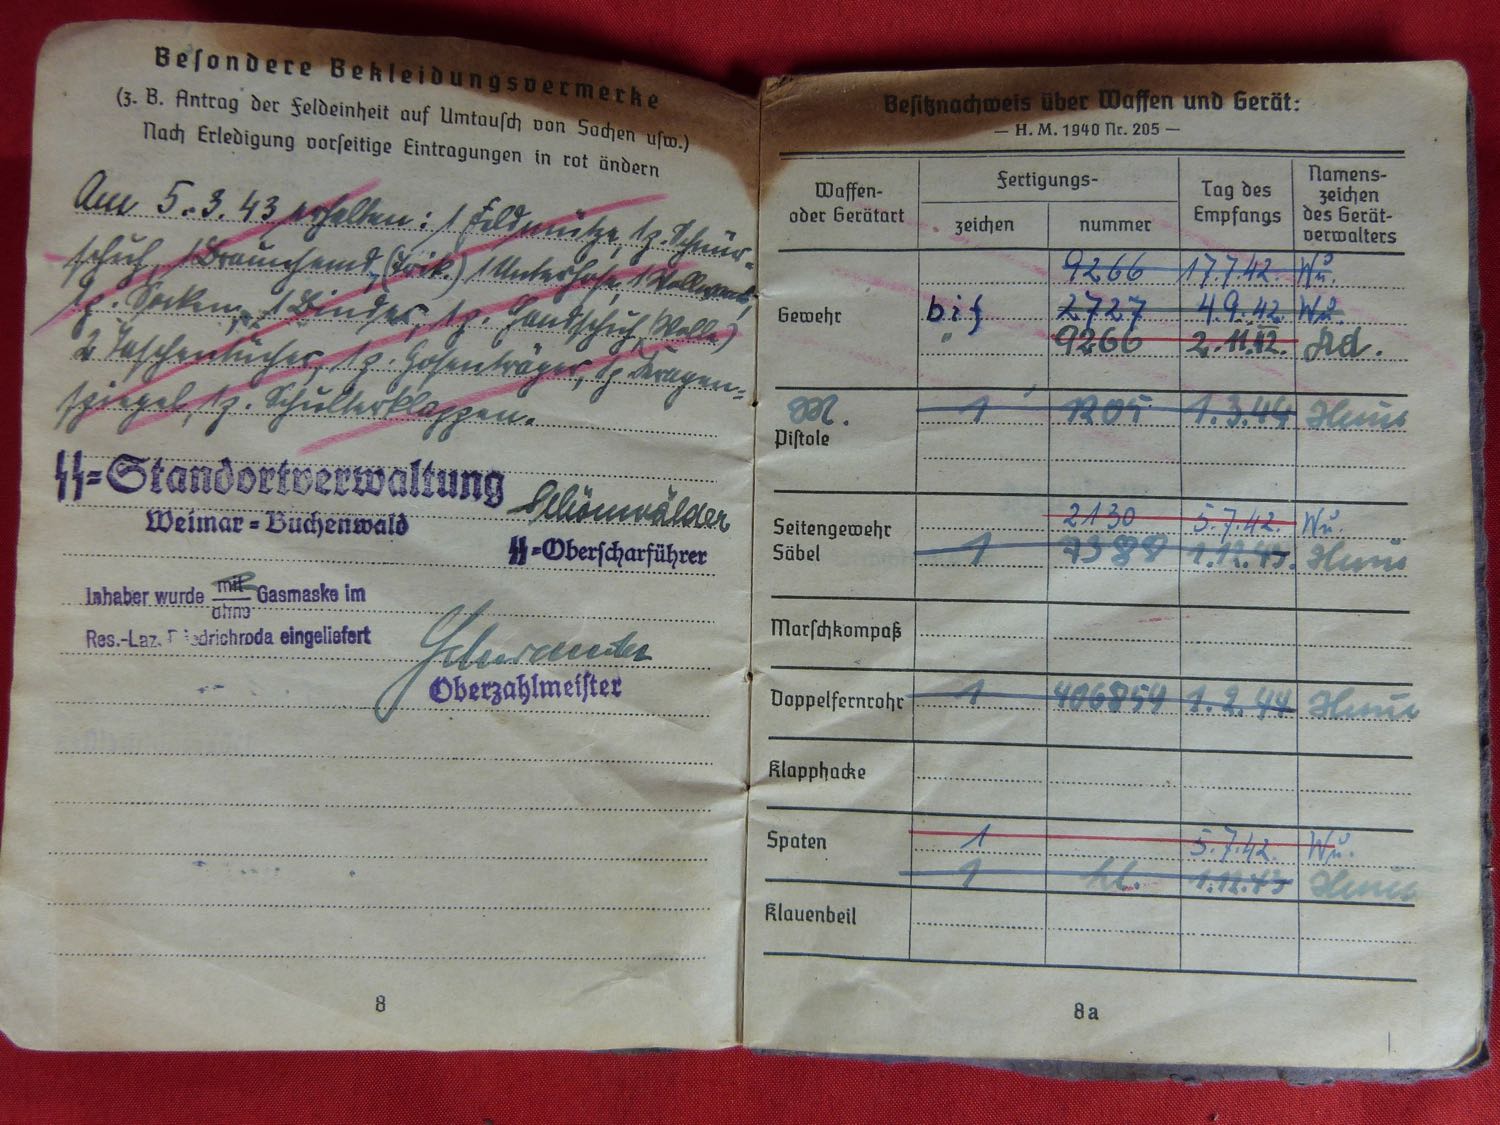 Besondere Bekleidungsvermerke
(z. B. Antrag der Feldeinheit auf Umtausch von Sachen usw.)
Nach Erledigung vorseitige Eintragungen in rot ändern
Am 5.3.43 erhalten: 1 Feldmütze, 1 p. Schnür-
schuh, 1 Braunhemd, (Trik.) 1 Unterhose,
1 p. Socken, 1 Binder, 1 p. Handschuh (Wolle)
2 Taschentücher, 1 p. Hosenträger, 1 p. Kragen-
spiegel, 1 p. Schulterklappen.
SS=Standortverwaltung
Weimar=Buchenwald
Schönwälder
SS=Oberscharführer
Inhaber wurde mit Gasmaske im
ohne
Res.-Laz. Friedrichroda eingeliefert
Oberzahlmeister
8
Besitznachweis über Waffen und Gerät:
— H. M. 1940 Nr. 205 —
Waffen- oder Gerätart Fertigungs- zeichen nummer Tag des Empfangs Namens- zeichen des Gerät- verwalters
9266 17.7.42. Wü.
Gewehr bif 2727 4.9.42. Wü.
" 9266 2.11.42. Ad.
M. 1 1205 1.3.44
Pistole
Seitengewehr 2130 5.7.42. Wü.
Säbel 1 7388 1.12.43.
Marschkompaß
Doppelfernrohr 1 406854 1.2.44
Klapphacke
Spaten 1 5.7.42. Wü.
1 kl. 1.12.43
Klauenbeil
8a